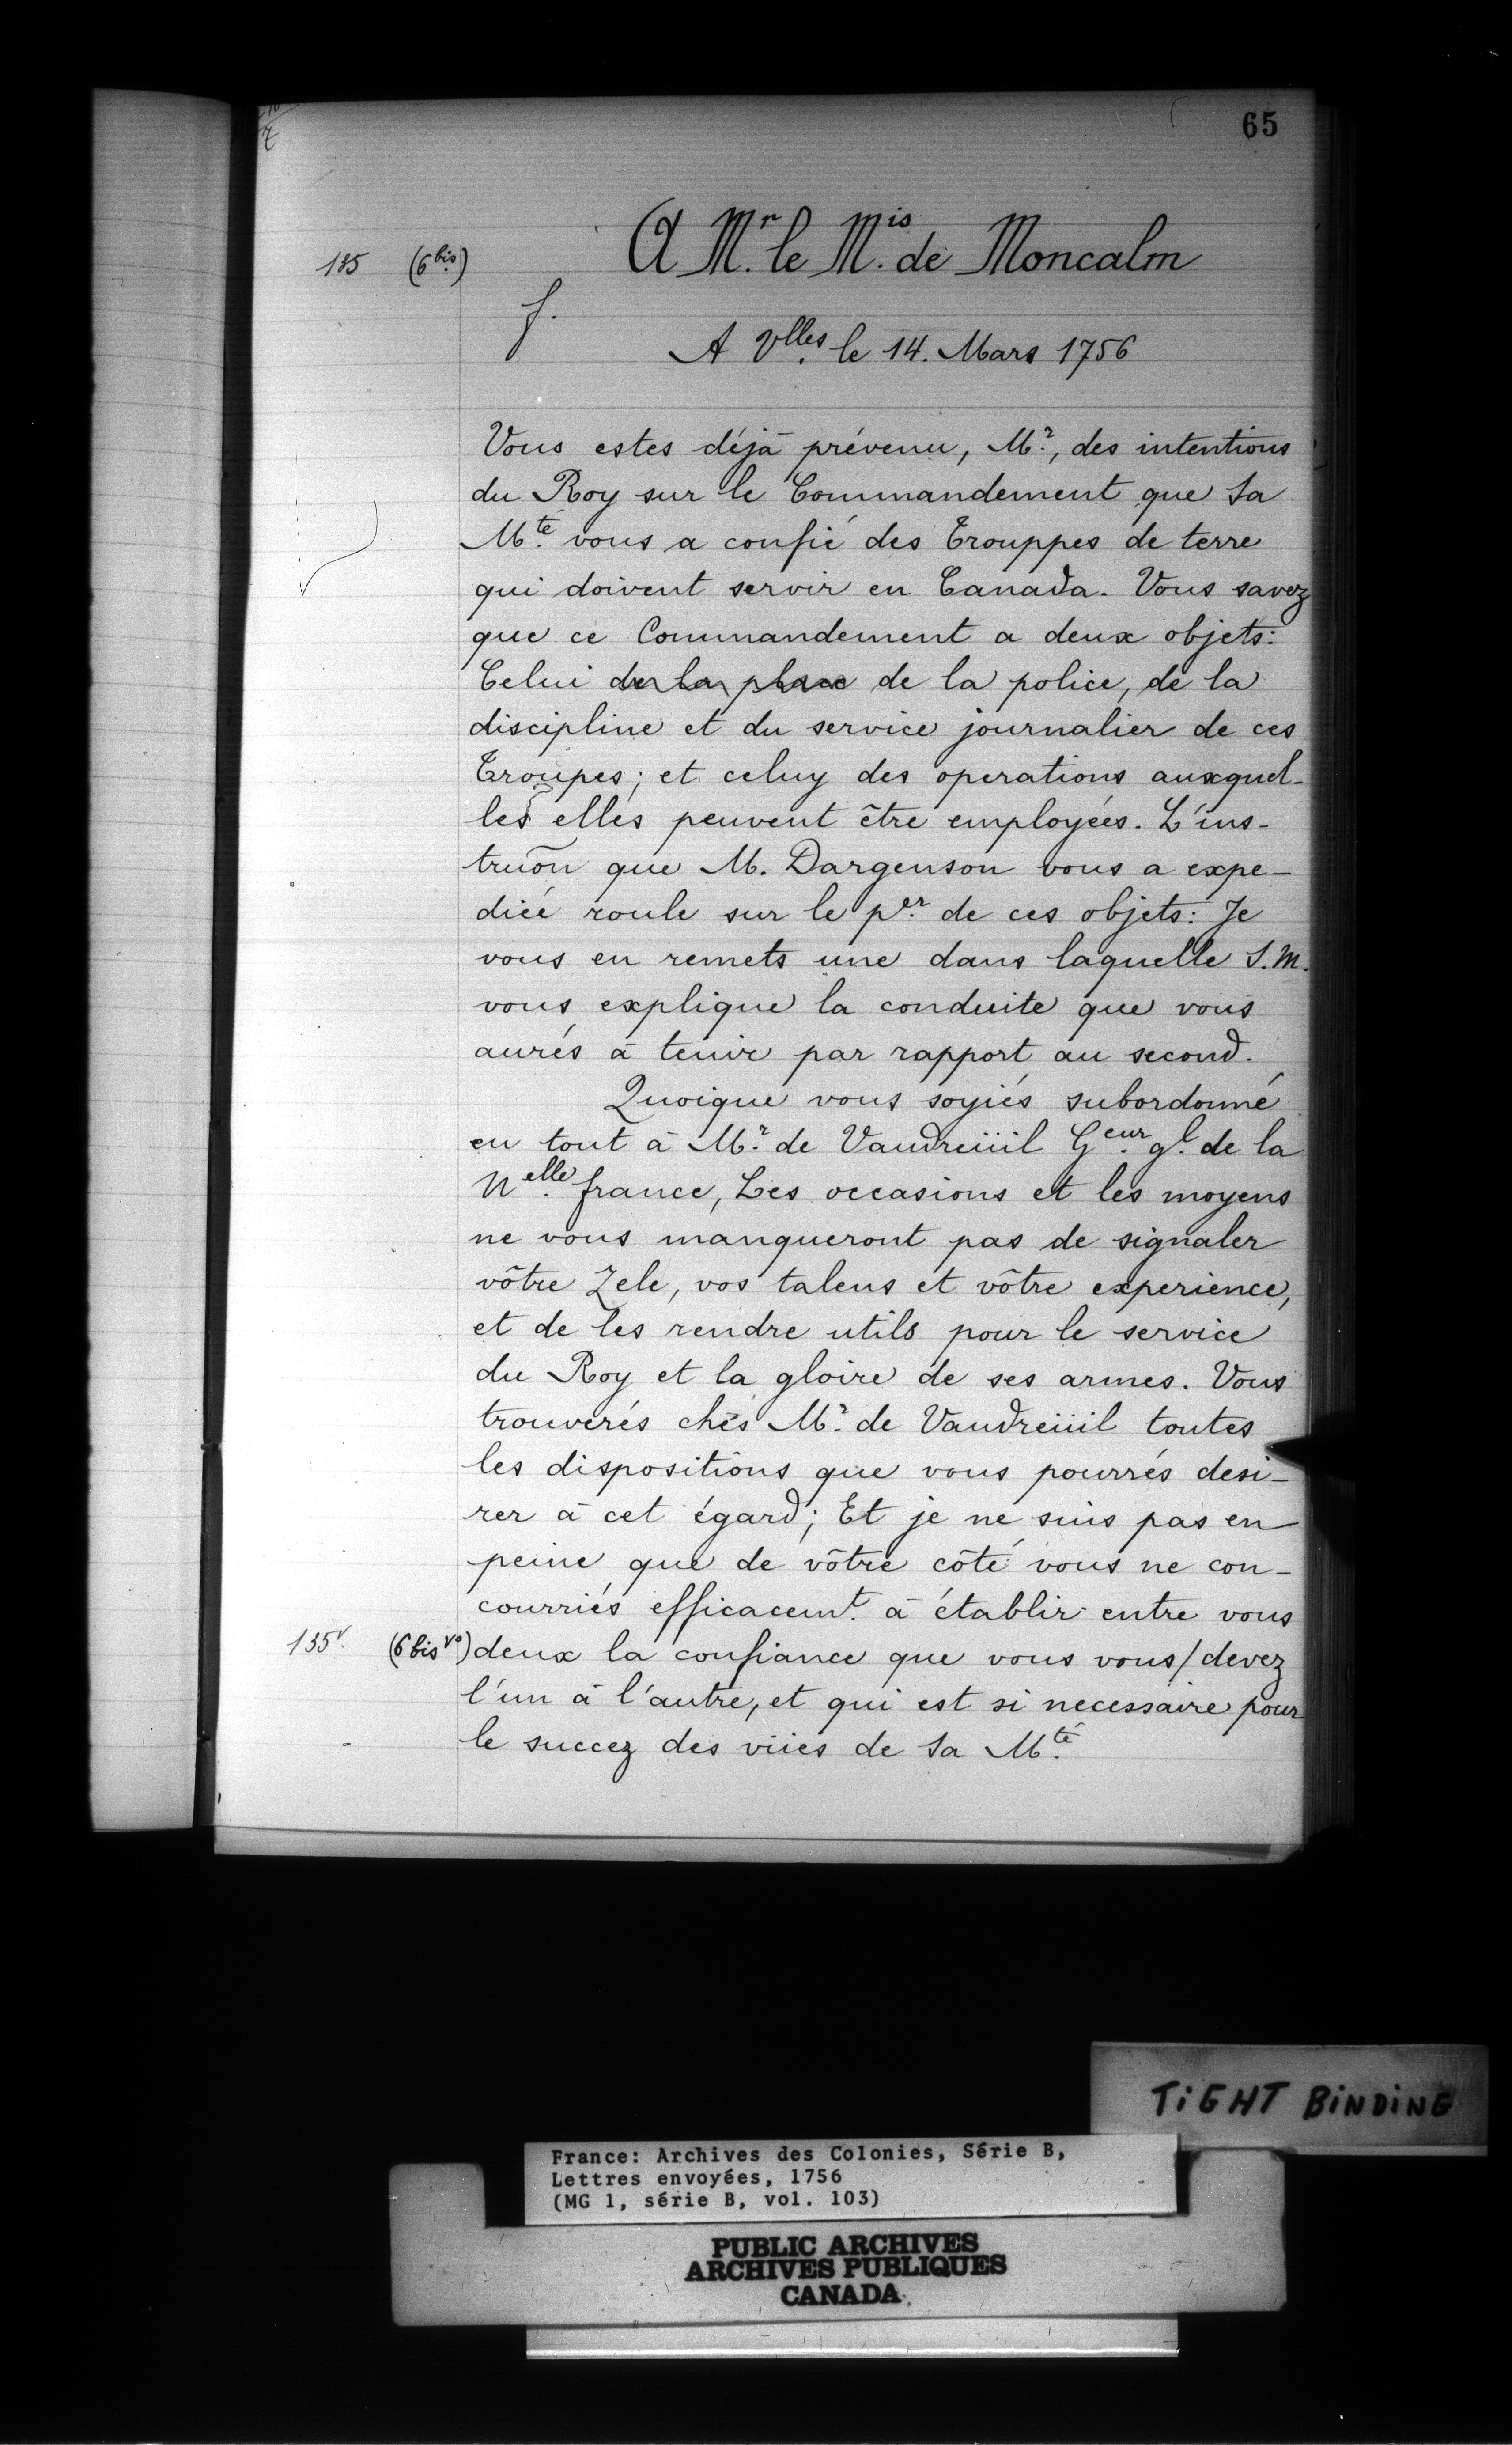 65
135 (6bis.) A Mr. le Mis. de Moncalm
f.
A Vlles. le 14. Mars 1756
Vous estes déjà prévenu, Mr., des intentions
du Roy sur le Commandement que Sa
Mté. vous a confié des Trouppes de terre
qui doivent servir en Canada. Vous savez
que ce Commandement a deux objets:
Celui de la place de la police, de la
discipline et du service journalier de ces
Troupes; et celuy des operations auxquel-
les elles peuvent être employées. L'ins-
truõn que M. Dargenson vous a expe-
diée roule sur le per. de ces objets: Je
vous en remets une dans laquelle S.M.
vous explique la conduite que vous
aurés à tenir par rapport au second.
Quoique vous soyiés subordonné
en tout à Mr. de Vaudreüil Geur. gl. de la
Nelle. france, Les occasions et les moyens
ne vous manqueront pas de signaler
vôtre Zele, vos talens et vôtre experience,
et de les rendre utils pour le service
du Roy et la gloire de ses armes. Vous
trouverés chés Mr. de Vaudreüil toutes
les dispositions que vous pourrés desi-
rer à cet égard; Et je ne suis pas en
peine que de vôtre côté vous ne con-
courriés efficacemt. à établir entre vous
135v. (6 bis vo) deux la confiance que vous vous/devez
l'un à l'autre, et qui est si necessaire pour
le succez des vües de Sa Mté.
TiGHT BiNDiNG
France: Archives des Colonies, Série B,
Lettres envoyées, 1756
(MG 1, série B, vol. 103)
PUBLIC ARCHIVES
ARCHIVES PUBLIQUES
CANADA